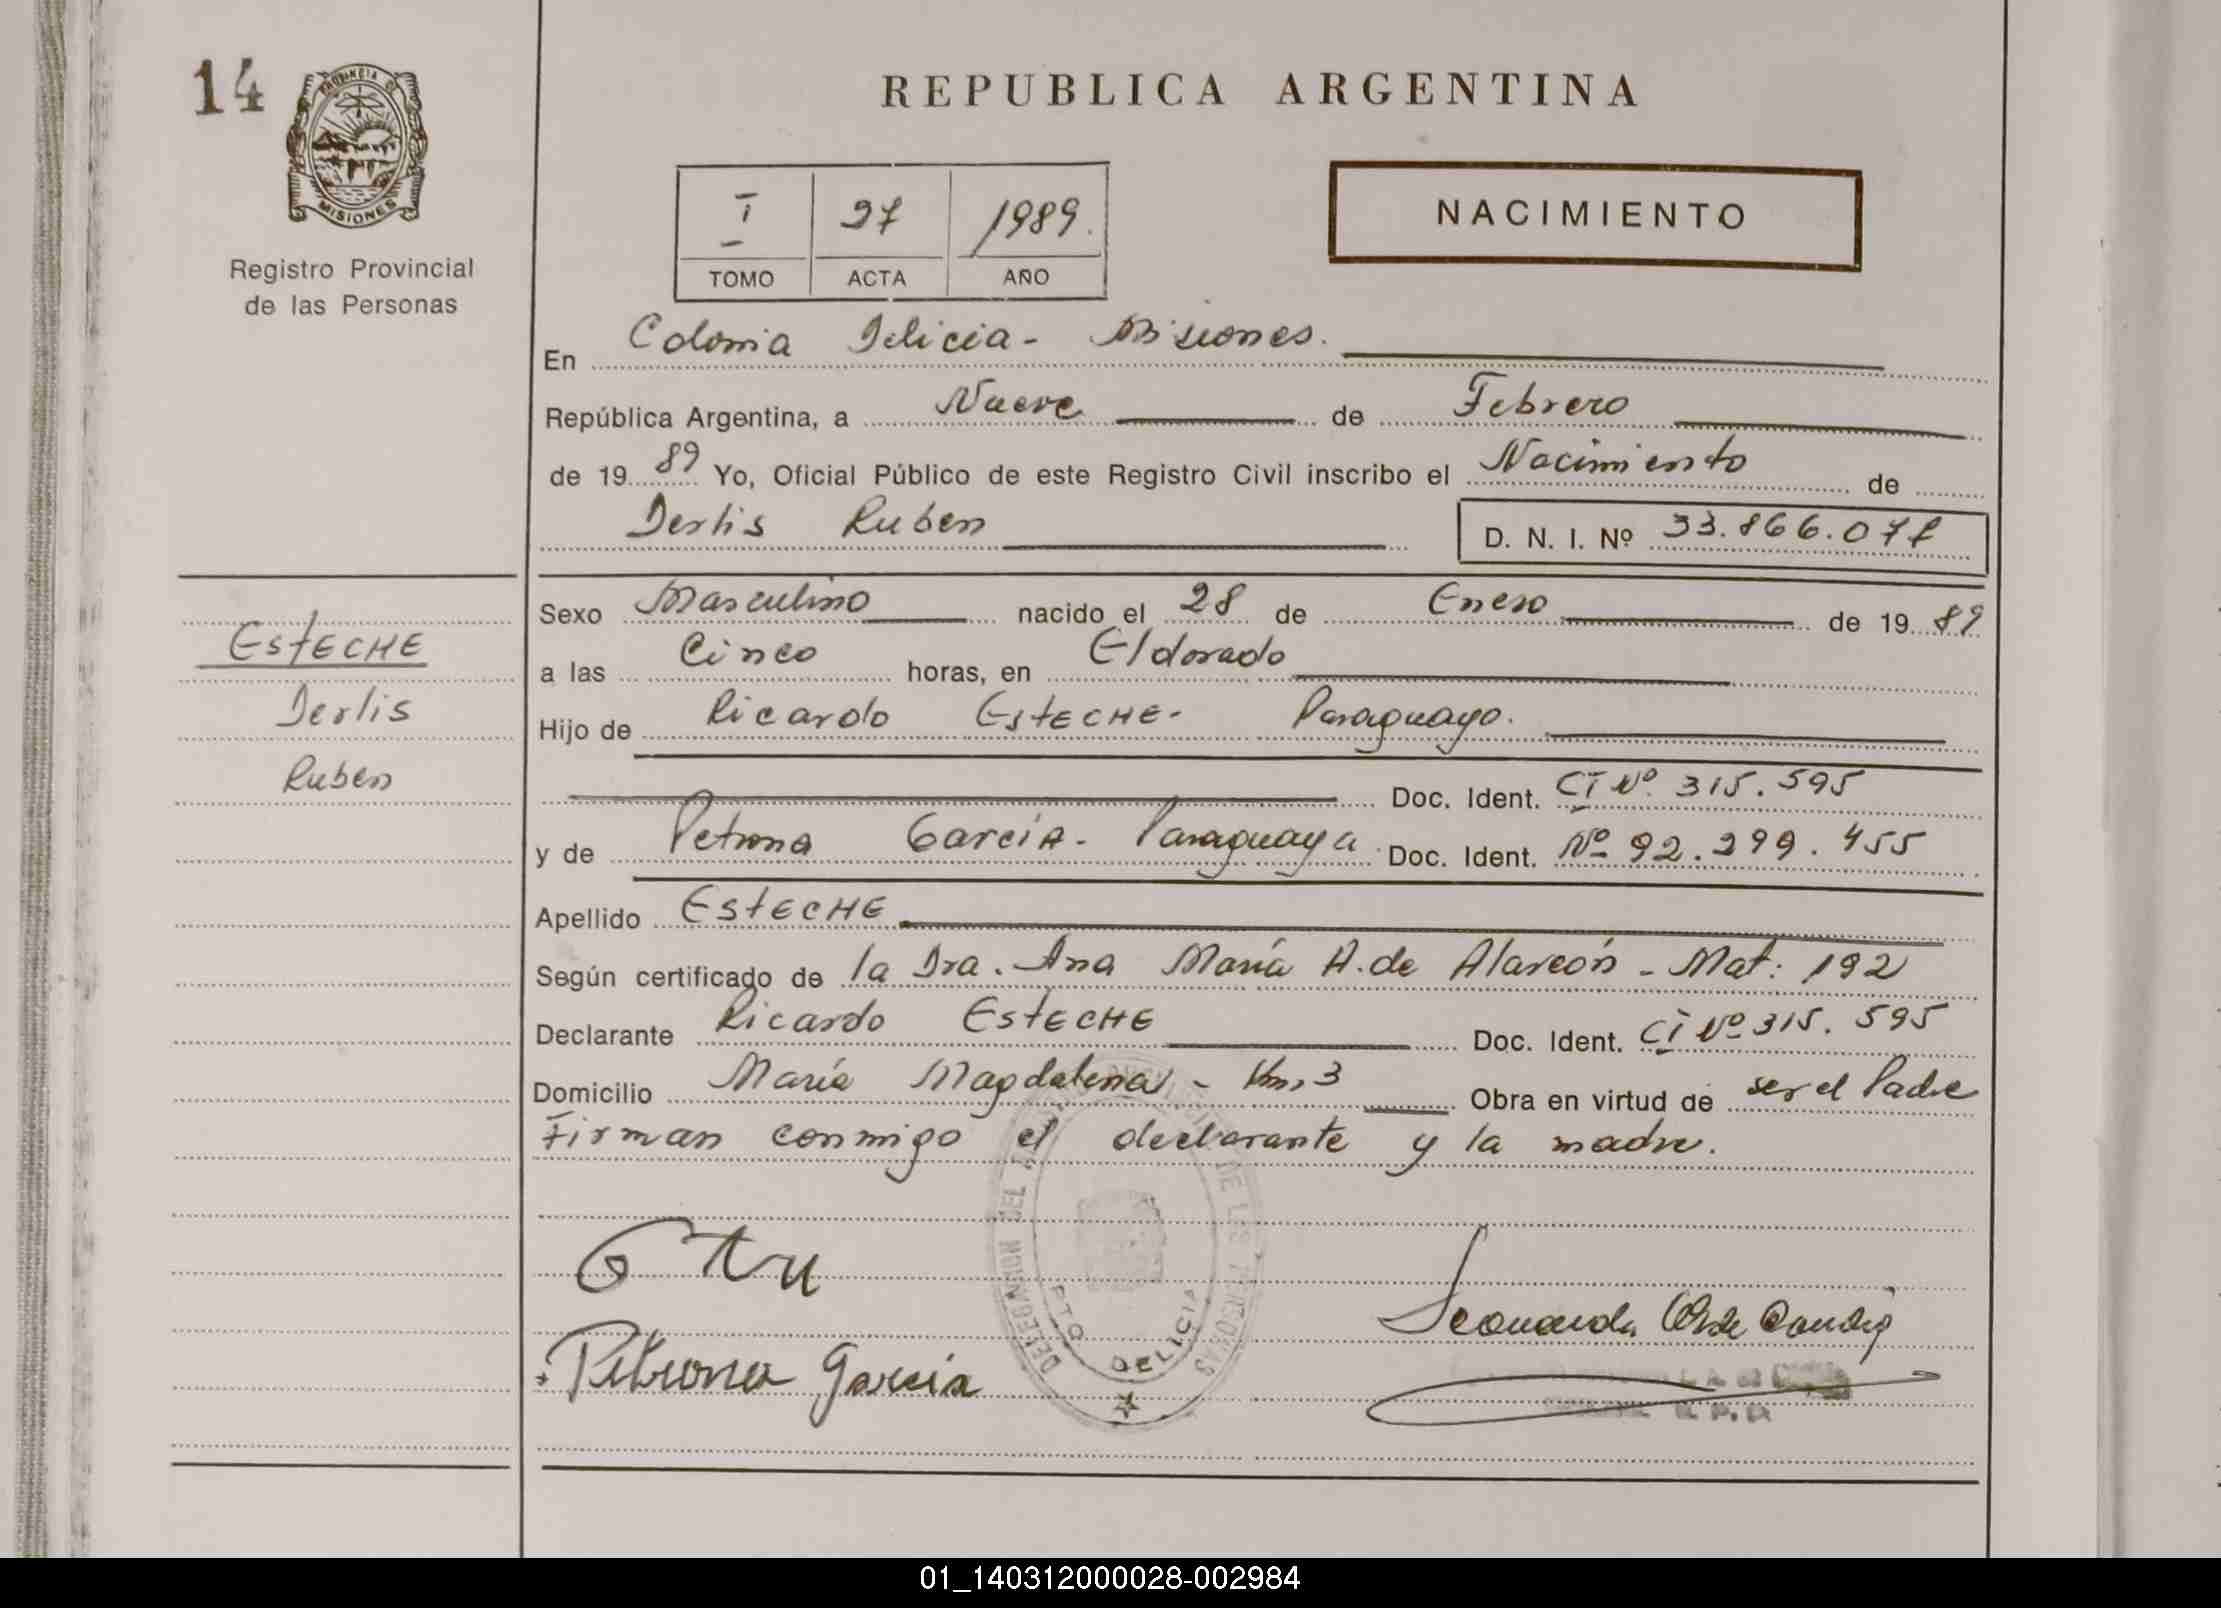 14
PROVINCIA DE
MISIONES
Registro Provincial
de las Personas
REPUBLICA ARGENTINA
I 27 1989.
TOMO ACTA AÑO
NACIMIENTO
En Colonia Delicia - Misiones.
República Argentina, a Nueve de Febrero
de 1989 Yo, Oficial Público de este Registro Civil inscribo el Nacimiento de
Derlis Ruben D. N. I. Nº 33.866.078
Sexo Masculino nacido el 28 de Enero de 1989
a las Cinco horas, en Eldorado
Hijo de Ricardo ESTECHE - Paraguayo.
Doc. Ident. CI Nº 315.595
y de Petrona Garcia - Paraguaya Doc. Ident. Nº 92.299.455
Apellido ESTECHE
Según certificado de la Dra. Ana María A. de Alarcón - Mat: 192
Declarante Ricardo ESTECHE Doc. Ident. CI Nº 315.595
Domicilio María Magdalena - Km, 3 Obra en virtud de ser el Padre
Firman conmigo el declarante y la madre.
ESTECHE
Derlis
Ruben
DELEGACION DEL REGISTRO PROVINCIAL DE LAS PERSONAS
PTO. DELICIA
Petrona Garcia
Leonarda
01_140312000028-002984